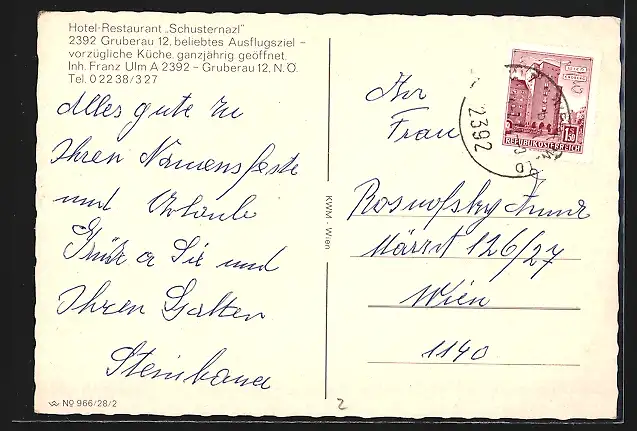 Hotel-Restaurant „Schusternazl"
2392 Gruberau 12, beliebtes Ausflugsziel –
vorzügliche Küche, ganzjährig geöffnet.
Inh. Franz Ulm A 2392 – Gruberau 12, N.Ö.
Tel. 0 22 38/3 27
Alles gute zu
Ihren Namensfeste
und
Grüße Sie und
Ihren Gatten
KWM - Wien
Frau
Wien
1140
2392
1.50
REPUBLIK ÖSTERREICH
No 966/28/2
2